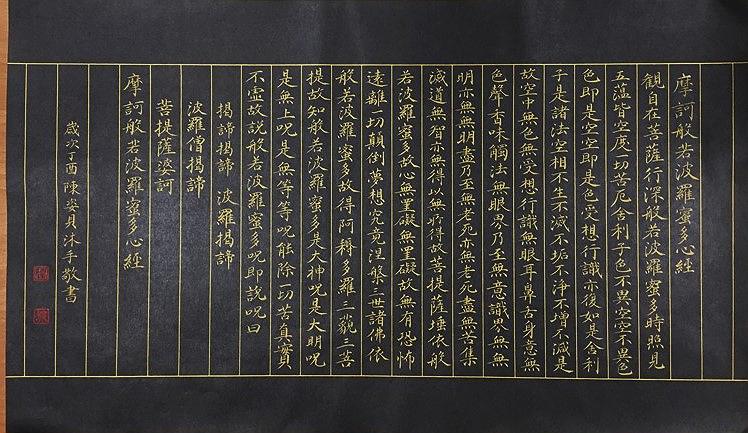 摩訶般若波羅蜜多心經
觀自在菩薩行深般若波羅蜜多時照見
五蘊皆空度一切苦厄舍利子色不異空空不異色
色即是空空即是色受想行識亦復如是舍利
子是諸法空相不生不滅不垢不淨不增不減是
故空中無色無受想行識無眼耳鼻舌身意無
色聲香味觸法無眼界乃至無意識界無無
明亦無無明盡乃至無老死亦無老死盡無苦集
滅道無智亦無得以無所得故菩提薩埵依般
若波羅蜜多故心無罣礙無罣礙故無有恐怖
遠離一切顛倒夢想究竟涅槃三世諸佛依
般若波羅蜜多故得阿耨多羅三藐三菩
提故知般若波羅蜜多是大神呪是大明呪
是無上呪是無等等呪能除一切苦真實
不虛故說般若波羅蜜多呪即說呪曰
揭諦揭諦 波羅揭諦
波羅僧揭諦
菩提薩婆訶
摩訶般若波羅蜜多心經
歲次丁酉 陳 貝沐手敬書